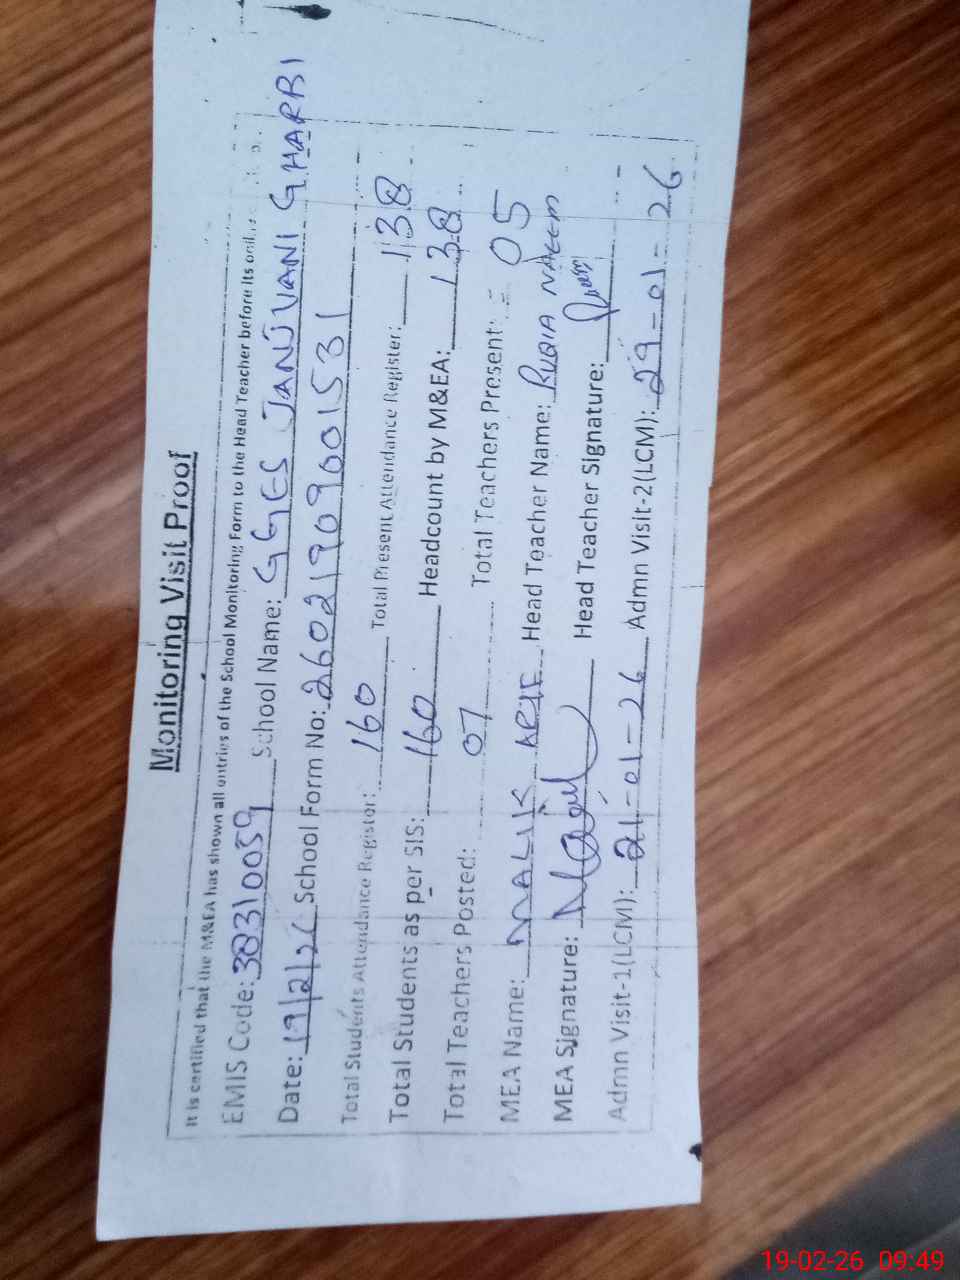 Monitoring Visit Proof
It is certified that the M&EA has shown all entries of the School Monitoring Form to the Head Teacher before its
EMIS Code: 38310059 School Name: GGES JANUVANI GHARBI
Date: 19/2/26 School Form No: 26021909001531
Total Students Attendance Register: 160 Total Present Attendance Register: 138
Total Students as per SIS: 160 Headcount by M&EA: 138
Total Teachers Posted: 07 Total Teachers Present: 05
MEA Name: MALIK Head Teacher Name: RUQIA NAEEM
MEA Signature: Head Teacher Signature:
Admn Visit-1(LCM): 21-01-26 Admn Visit-2(LCM): 29-01-26
19-02-26 09:49